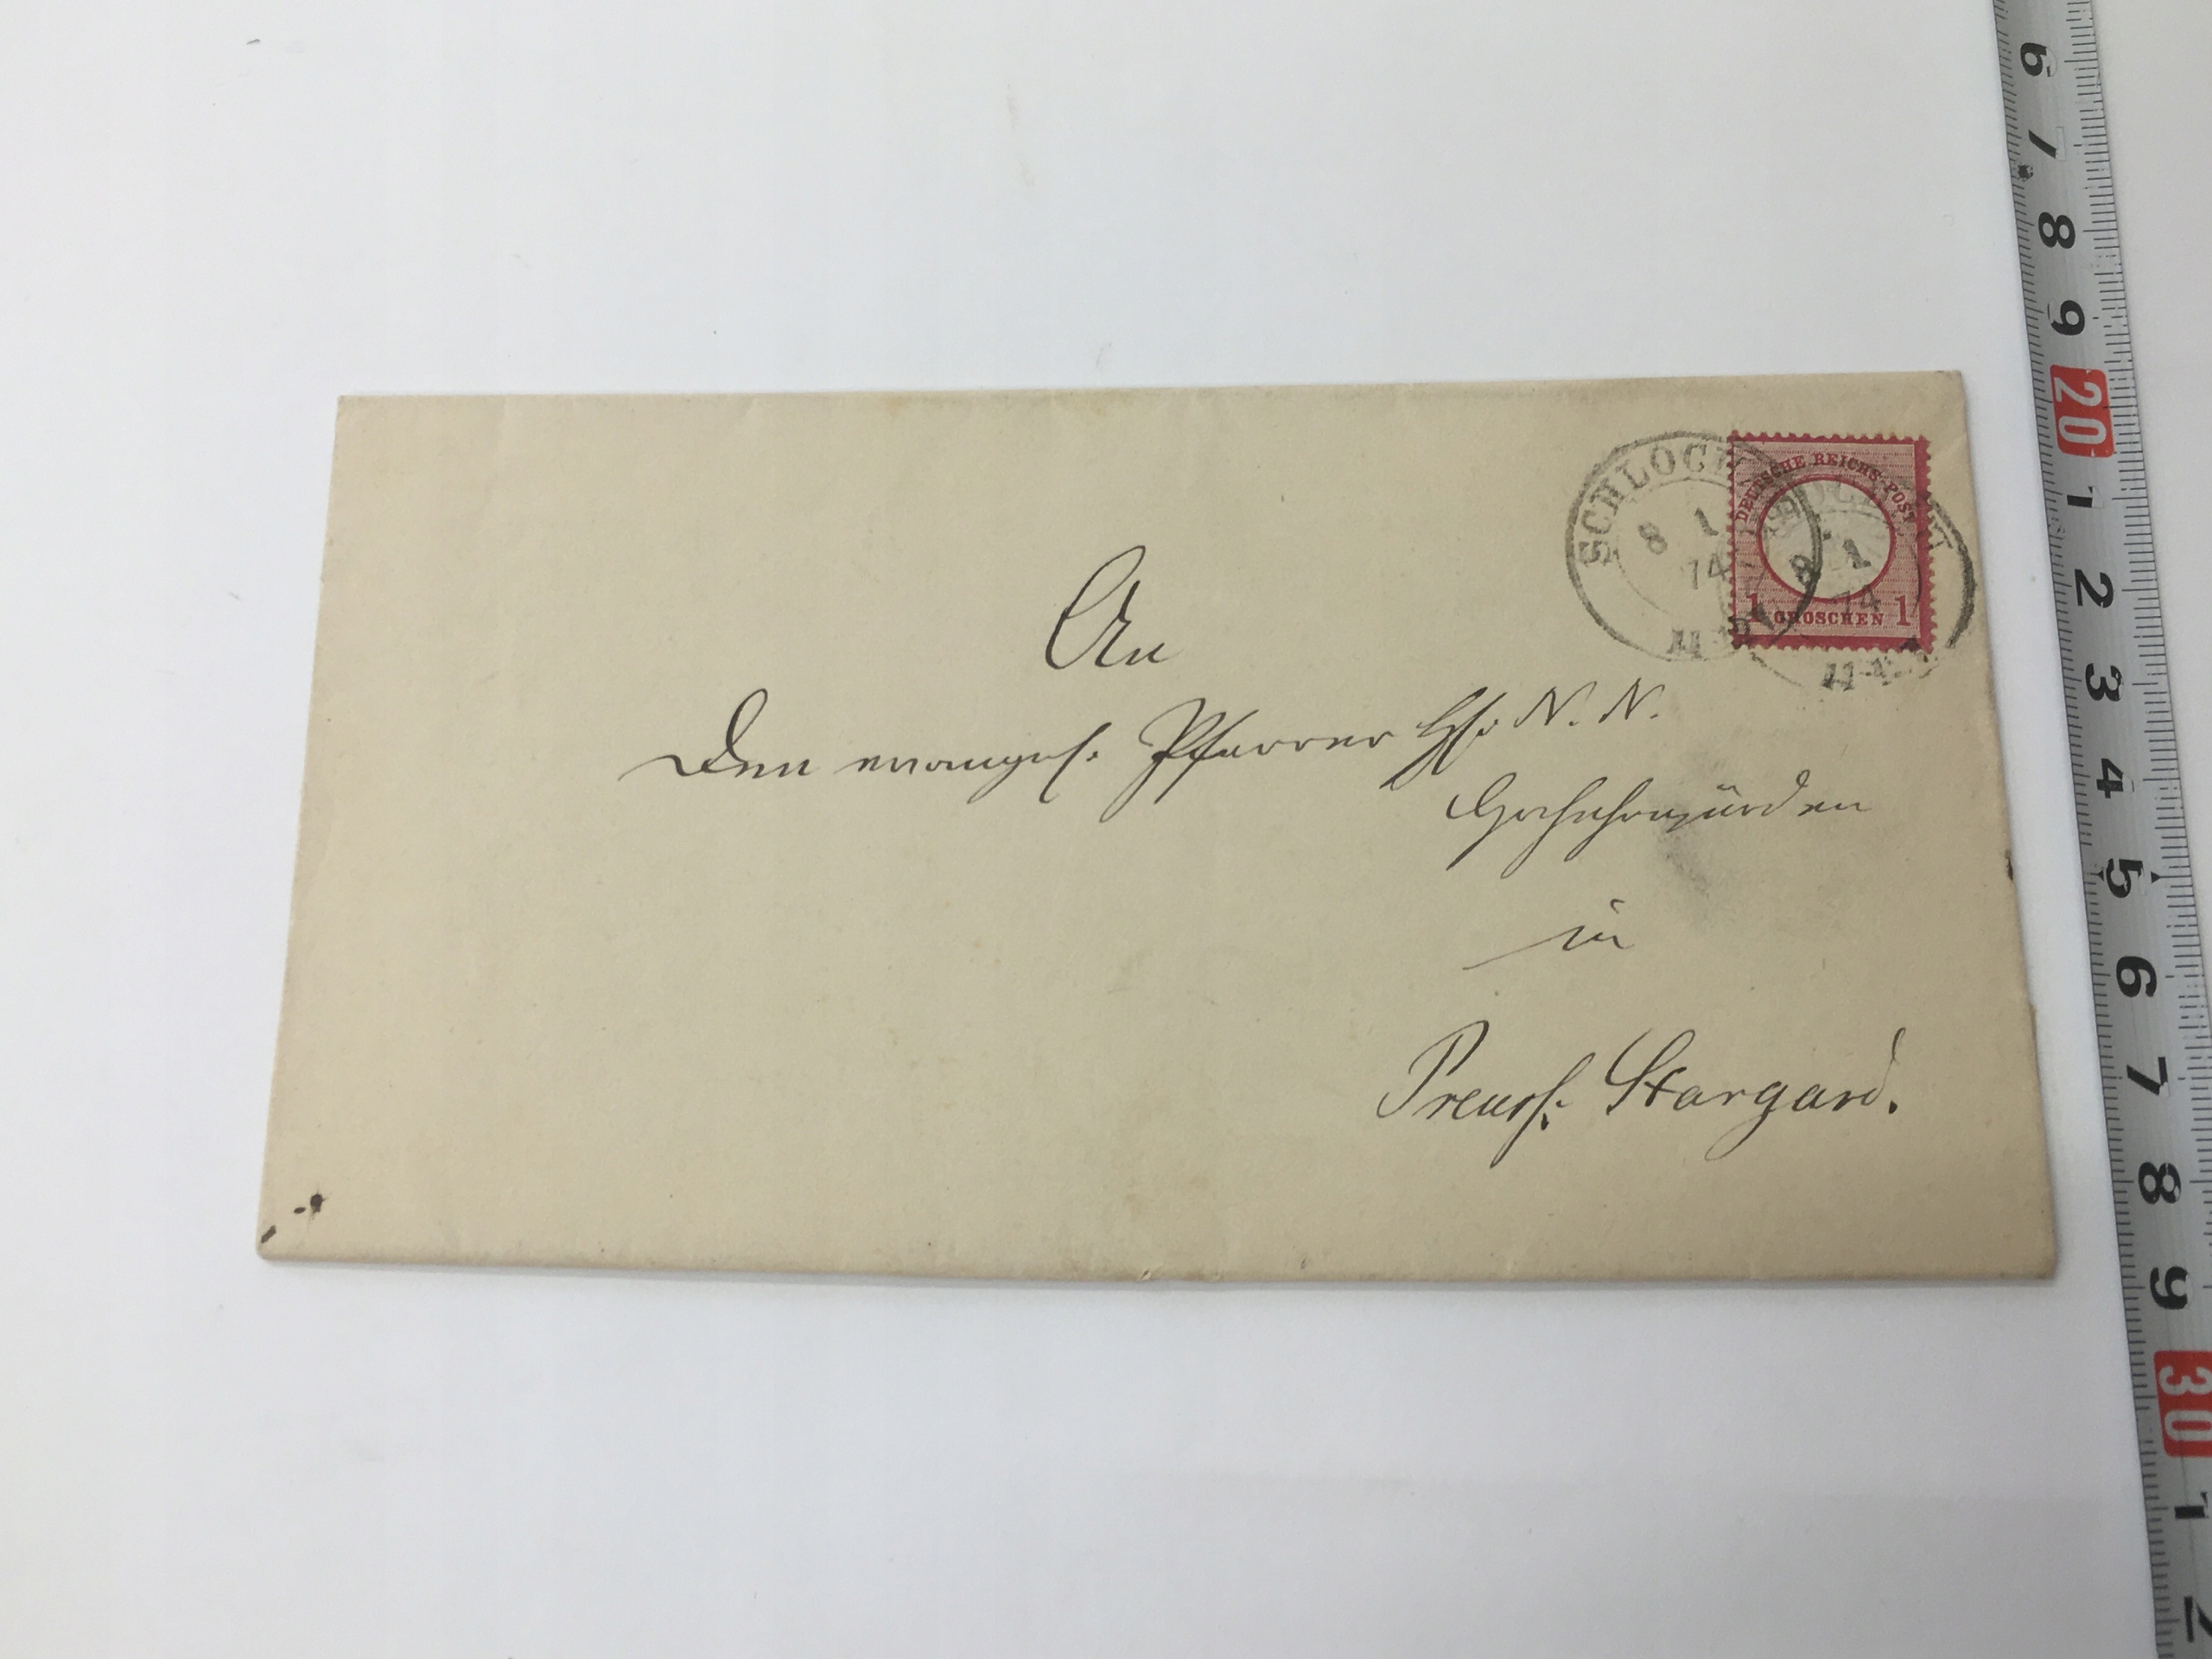 SCHLOCHAU
8 1
74
8 1
74
DEUTSCHE REICHS-POST
1 GROSCHEN 1
An
den evangel. Pfarrer H: N. N.
Hochehrwürden
in
Preuss: Stargard.
6 7 8 9 20 1 2 3 4 5 6 7 8 9 30 1 2